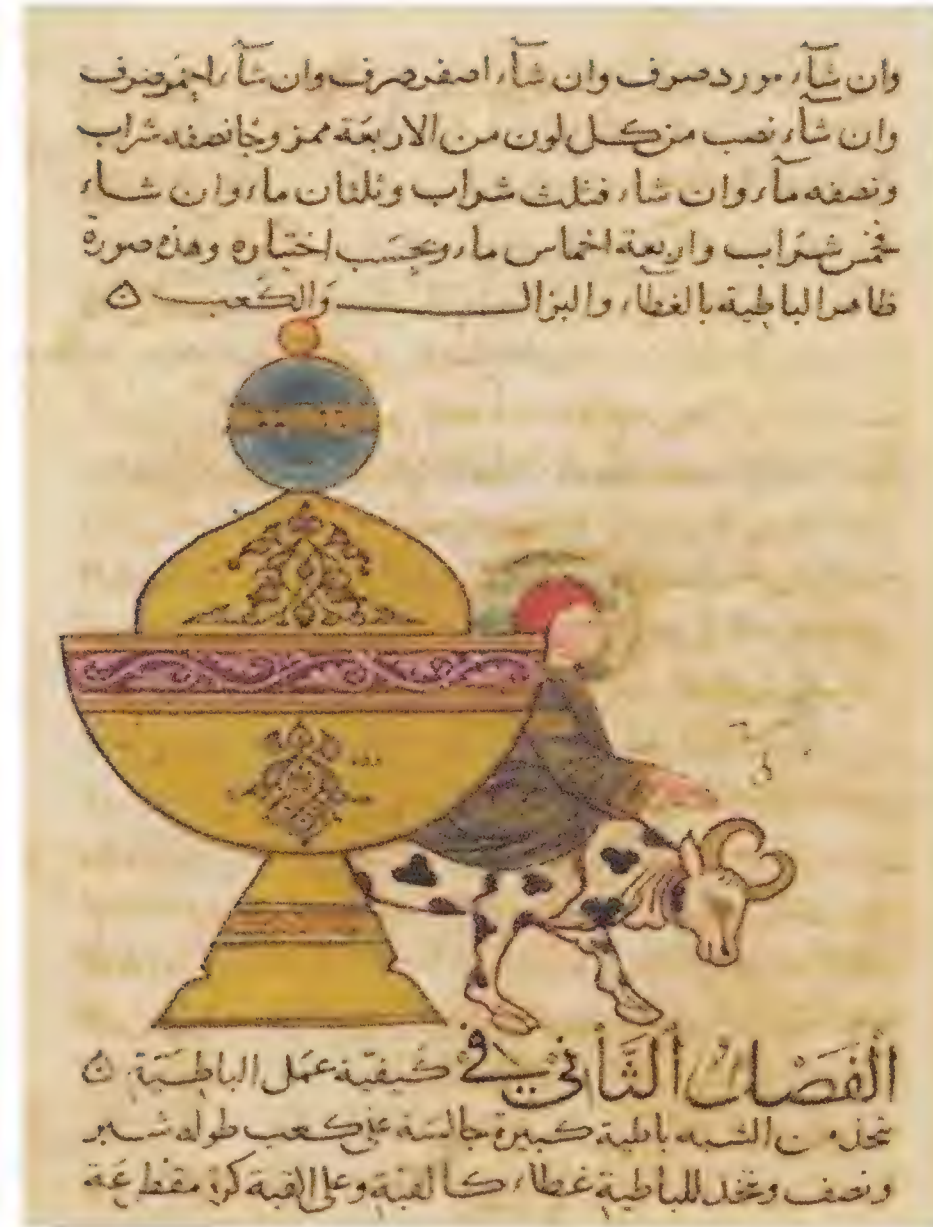 وان شآء مورد صرف وان شآء اصفر صرف وان شآء احمر صرف
وان شآء نصب من كل لون من الاربعة ممزوجا نصفه شراب
ونصفه مآء وان شاء فثلث شراب وثلثان ماء وان شاء
فخمس شراب واربعة اخماس ماء وبحسب اختياره وهذه صورة
ظاهر الباطية بالغطاء والبزال والكعب ن
الفصل الثاني في كيفية عمل الباطية ن
تتخذ من الشبه باطية كبيرة جالسة على كعب طوله شبر
ونصف وتتخذ للباطية غطاء كالقبة وعلى القبة كرة مقطعة